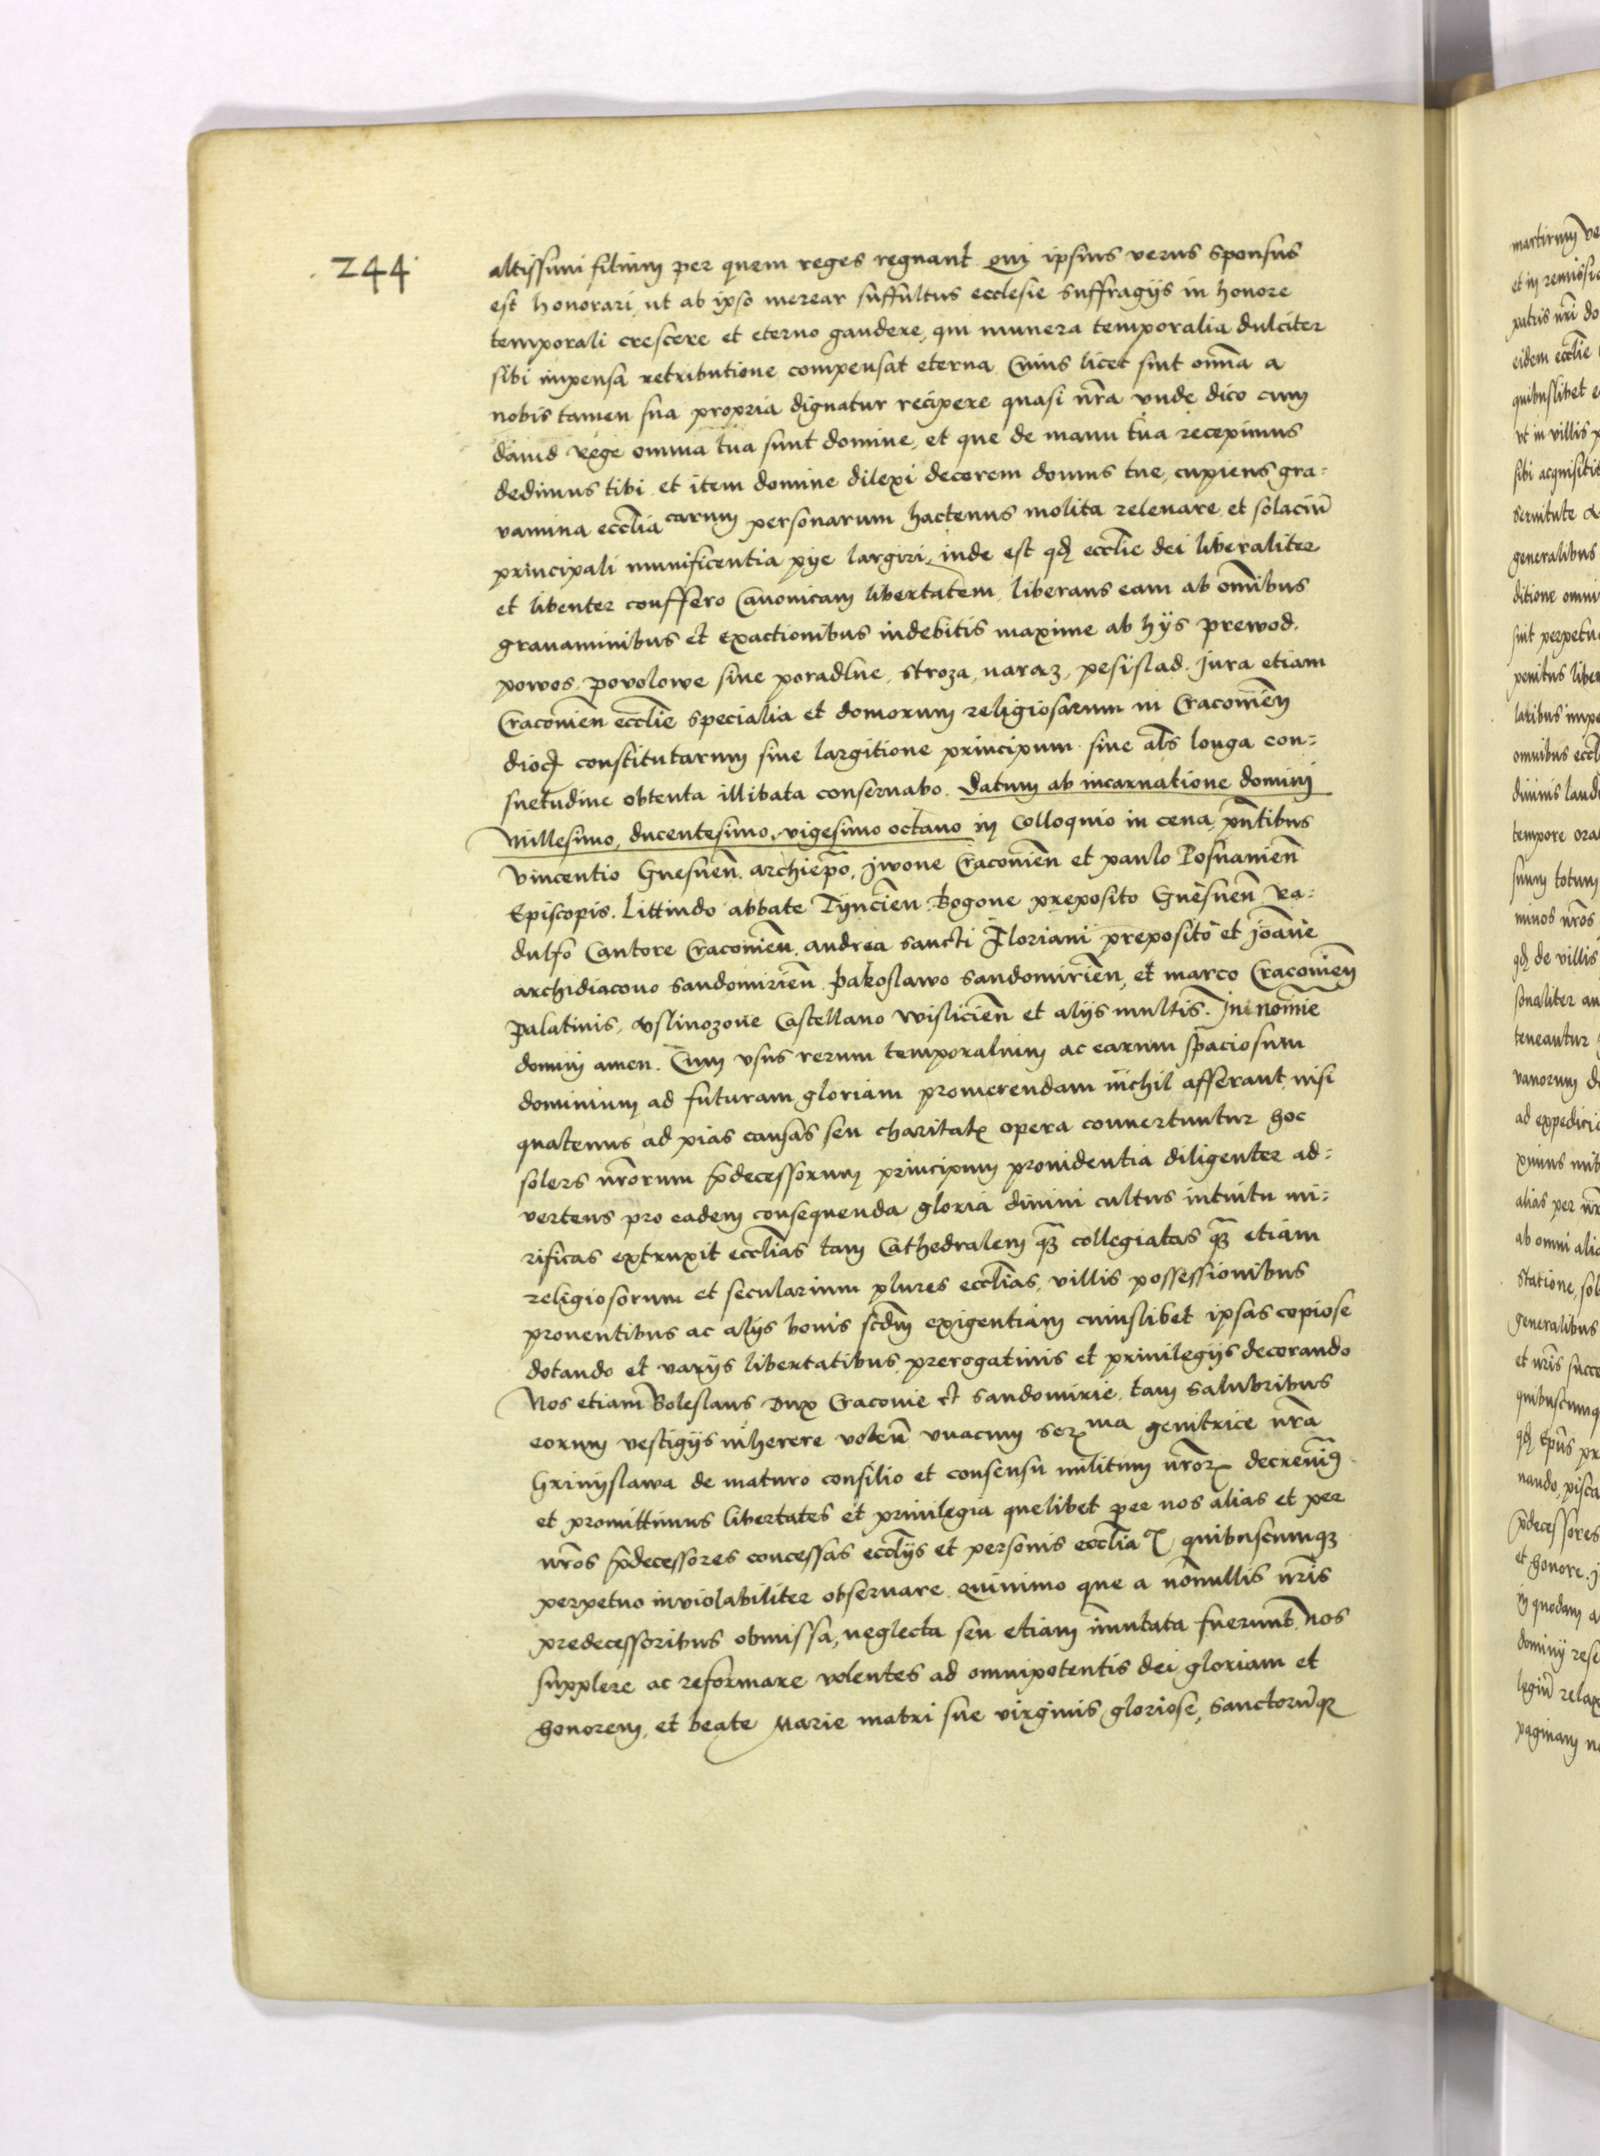 244
altissimi filium per quem reges regnant qui ipsius verus sponsus
est honorari, ut ab ipso merear suffultus ecclesie suffragijs in honore
temporali crescere et eterno gaudere, qui munera temporalia dulciter
sibi impensa retributione compensat eterna Cuius licet sint om̄ia a
nobis tamen sua propria dignatur recipere quasi nr̄a vnde dico cum
dauid rege omnia tua sunt domine, et que de manu tua recepimus
dedimus tibi et item domine dilexi decorem domus tue, cupiens gra=
vamina ecclīa carum personarum hactenus molita releuare et solaciū
principali munificentia pye largiri, inde est qđ ecclīe dei liberaliter
et libenter conffero Canonicam libertatem, liberans eam ab om̄ibus
grauaminibus et exactionibus indebitis maxime ab hijs prewod.
powos, povolowe siue poradlne, stroza, naraz, pesislad. Jura etiam
Cracouien̄ ecclīe specialia et domorum religiosarum in Cracouien̄
dioc̄ constitutarum siue largitione principum siue al̄s longa con=
suetudine obtenta illibata conseruabo. Datum ab incarnatione domini
Millesimo, ducentesimo, vigesimo octauo in Colloquio in cena, pn̄tibus
Vincentio Gnesnen̄. archiep̄o, Jwone Cracouien̄ et paulo Posnanien̄
Episcopis. Littindo abbate Tyncien̄ Bogone preposito Gnesnen̄ Ra=
dulfo Cantore Cracouien̄. andrea sancti Floriani preposito et Joāne
archidiacono Sandomirien̄ Pakoslawo sandomirien̄, et marco Cracouien̄
Palatinis, Vslinozone Castellano wislicien̄ et alijs multis. In nomīe
domini amen. Cum vsus rerum temporalium ac earum spaciosum
dominium ad futuram gloriam promerendam nichil afferant nisi
quatenus ad pias causas seu charitatꝭ opera conuertuntur hoc
solers nr̄orum p̄decessorum principum prouidentia diligenter ad=
vertens pro eadem consequenda gloria diuini cultus intuitu mi=
rificas extruxit ecclīas tam Cathedralem q̄ꝫ collegiatas q̄ꝫ etiam
religiosorum et secularium plures ecclīas, villis possessionibus
prouentibus ac alijs bonis scd̄m exigentiam cuiuslibet ipsas copiose
dotando et varijs libertatibus, prerogatiuis et priuilegijs decorando
Nos etiam Boleslaus Dux Cracouie et Sandomirie, tam salubribus
eorum vestigijs inherere volen̄ vnacum serma genitrice nr̄a
Grimyslawa de maturo consilio et consensu militum nr̄orꝝ decreuimꝰ
et promittimus libertates et priuilegia quelibet per nos alias et per
nr̄os p̄decessores concessas ecclījs et personis ecclīaꝭ quibuscumqꝫ
perpetuo inviolabiliter obseruare quinimo que a nōnullis nr̄is
predecessoribus obmissa, neglecta seu etiam im̄utata fuerunt, nos
supplere ac reformare volentes ad omnipotentis dei gloriam et
honorem, et beate Marie matri sue virginis gloriose, sanctorūqꝫ